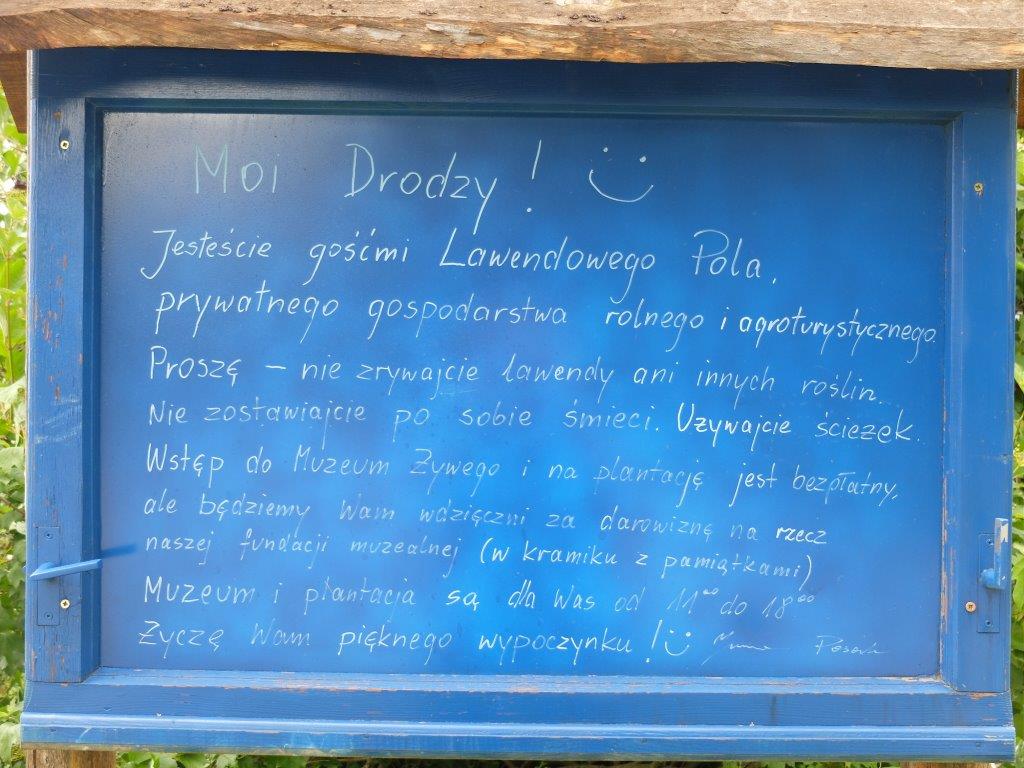 Moi Drodzy!
Jesteście gośćmi Lawendowego Pola,
prywatnego gospodarstwa rolnego i agroturystycznego.
Proszę - nie zrywajcie lawendy ani innych roślin.
Nie zostawiajcie po sobie śmieci. Używajcie ścieżek.
Wstęp do Muzeum Żywego i na plantację jest bezpłatny,
ale będziemy Wam wdzięczni za darowiznę na rzecz
naszej fundacji muzealnej (w kramiku z pamiątkami)
Muzeum i plantacja są dla Was od 11⁰⁰ do 18⁰⁰
Życzę Wam pięknego wypoczynku!